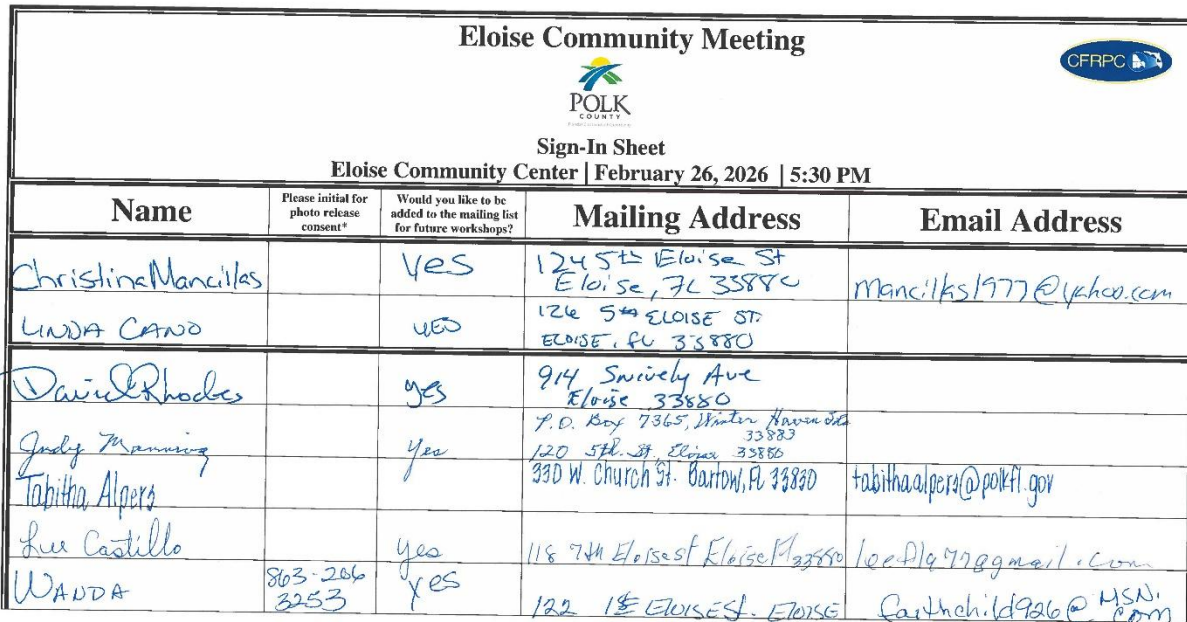 Eloise Community Meeting
CFRPC
POLK
COUNTY
Sign-In Sheet
Eloise Community Center | February 26, 2026 | 5:30 PM
Name
Please initial for
photo release
consent*
Would you like to be
added to the mailing list
for future workshops?
Mailing Address
Email Address
Christina Mancillas
yes
124 5th Eloise St
Eloise, FL 33880
mancillas1977@yahoo.com
LINDA CANO
YES
126 5th ELOISE ST.
ELOISE, FL 33880
David Rhodes
yes
914 Snively Ave
Eloise 33880
Judy Manning
Yes
P.O. Box 7365, Winter Haven
33883
120 5th St, Eloise 33880
Tabitha Alpers
330 W. Church St. Bartow, FL 33830
tabithaalpers@polkfl.gov
Lue Castillo
yes
118 7th Eloise st Eloise Fl 33880
WANDA
863-206
3253
yes
122 1st ELOISE St. ELOISE
faithchild926@MSN.
COM